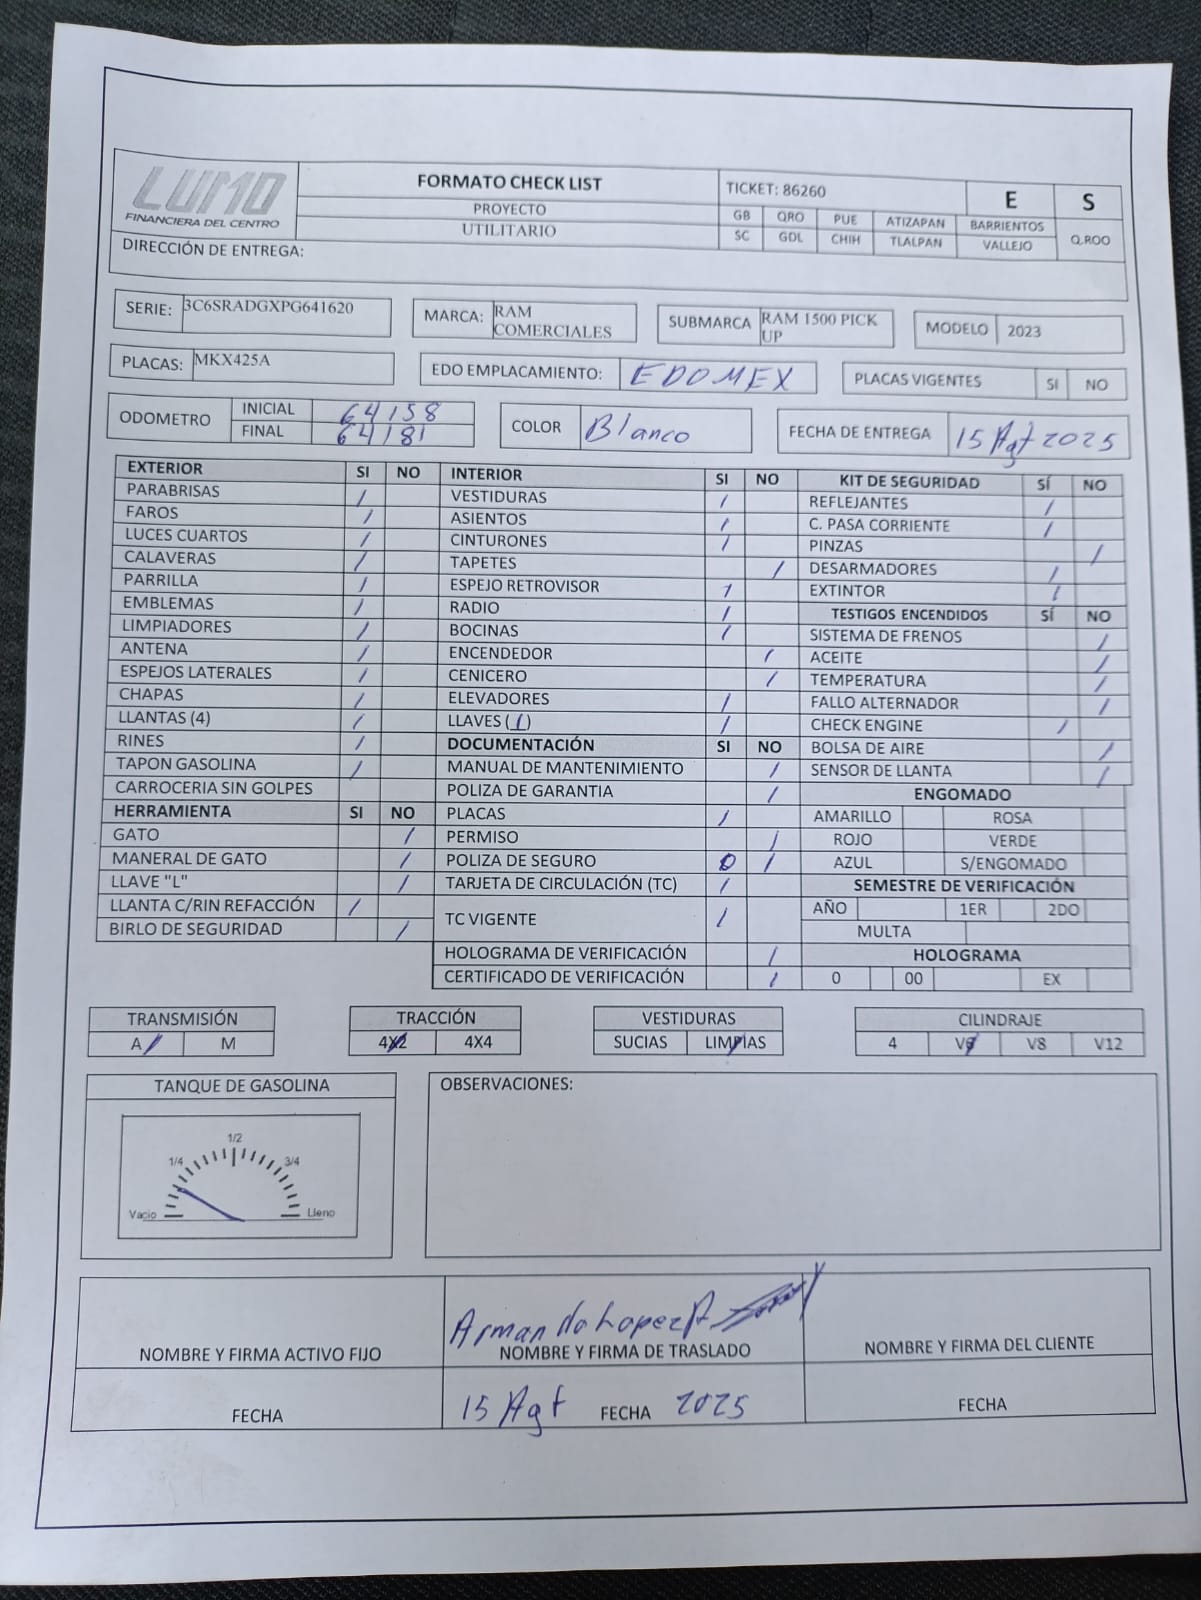 LUMO
FINANCIERA DEL CENTRO
FORMATO CHECK LIST
PROYECTO
UTILITARIO
TICKET: 86260 E S
GB QRO PUE ATIZAPAN BARRIENTOS Q.ROO
SC GDL CHIH TLALPAN VALLEJO
DIRECCIÓN DE ENTREGA:
SERIE: 3C6SRADGXPG641620
MARCA: RAM COMERCIALES
SUBMARCA RAM 1500 PICK UP
MODELO 2023
PLACAS: MKX425A
EDO EMPLACAMIENTO: EDOMEX
PLACAS VIGENTES SI NO
ODOMETRO INICIAL 64158
FINAL 64181
COLOR Blanco
FECHA DE ENTREGA 15 Agt 2025
EXTERIOR SI NO
PARABRISAS /
FAROS /
LUCES CUARTOS /
CALAVERAS /
PARRILLA /
EMBLEMAS /
LIMPIADORES /
ANTENA /
ESPEJOS LATERALES /
CHAPAS /
LLANTAS (4) /
RINES /
TAPON GASOLINA /
CARROCERIA SIN GOLPES
HERRAMIENTA SI NO
GATO /
MANERAL DE GATO /
LLAVE "L" /
LLANTA C/RIN REFACCIÓN /
BIRLO DE SEGURIDAD /
INTERIOR SI NO
VESTIDURAS /
ASIENTOS /
CINTURONES /
TAPETES /
ESPEJO RETROVISOR /
RADIO /
BOCINAS /
ENCENDEDOR /
CENICERO /
ELEVADORES /
LLAVES (1) /
DOCUMENTACIÓN SI NO
MANUAL DE MANTENIMIENTO /
POLIZA DE GARANTIA /
PLACAS /
PERMISO /
POLIZA DE SEGURO /
TARJETA DE CIRCULACIÓN (TC) /
TC VIGENTE /
HOLOGRAMA DE VERIFICACIÓN /
CERTIFICADO DE VERIFICACIÓN /
KIT DE SEGURIDAD SÍ NO
REFLEJANTES /
C. PASA CORRIENTE /
PINZAS /
DESARMADORES /
EXTINTOR /
TESTIGOS ENCENDIDOS SÍ NO
SISTEMA DE FRENOS /
ACEITE /
TEMPERATURA /
FALLO ALTERNADOR /
CHECK ENGINE /
BOLSA DE AIRE /
SENSOR DE LLANTA /
ENGOMADO
AMARILLO ROSA
ROJO VERDE
AZUL S/ENGOMADO
SEMESTRE DE VERIFICACIÓN
AÑO 1ER 2DO
MULTA
HOLOGRAMA
0 00 EX
TRANSMISIÓN
A / M
TRACCIÓN
4X2 4X4
VESTIDURAS
SUCIAS LIMPIAS
CILINDRAJE
4 V6 V8 V12
TANQUE DE GASOLINA
1/2
1/4 3/4
Vacio Lleno
OBSERVACIONES:
NOMBRE Y FIRMA ACTIVO FIJO
Armando Lopez A
NOMBRE Y FIRMA DE TRASLADO
NOMBRE Y FIRMA DEL CLIENTE
FECHA
15 Agt FECHA 2025
FECHA